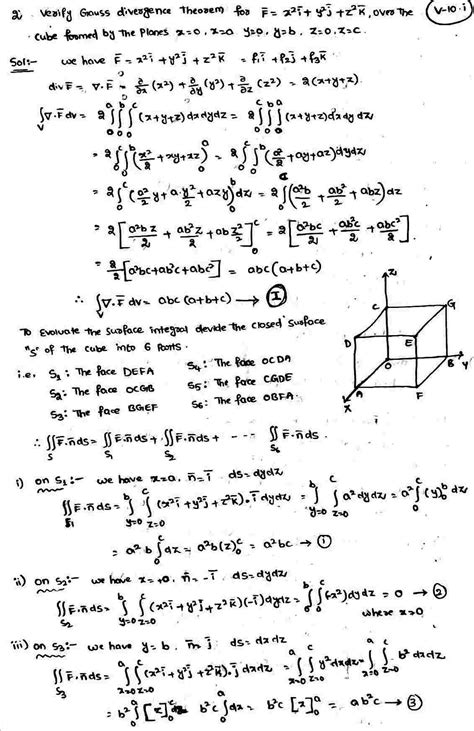 2. Verify Gauss divergence Theorem for F̄ = x²ī + y²j̄ + z²k̄, over the
V-10.i
cube formed by the planes x=0, x=a y=0, y=b, z=0, z=c.
Sol:- we have F̄ = x²ī + y²j̄ + z²k̄ = f₁ī + f₂j̄ + f₃k̄
div F̄ = ∇·F̄ = ∂/∂x (x²) + ∂/∂y (y²) + ∂/∂z (z²) = 2(x+y+z)
∫_V ∇·F̄ dv = 2 ∫₀^a ∫₀^b ∫₀^c (x+y+z) dx dy dz = 2 ∫₀^c ∫₀^b ∫₀^a (x+y+z) dx dy dz
= 2 ∫₀^c ∫₀^b (x²/2 + xy + xz)₀^a = 2 ∫₀^c ∫₀^b (a²/2 + ay + az) dy dz
= 2 ∫₀^c (a²/2 y + a·y²/2 + azy)₀^b dz = 2 ∫₀^c (a²b/2 + ab²/2 + abz) dz
= 2 [a²bz/2 + ab²z/2 + ab z²/2]₀^c = 2 [a²bc/2 + ab²c/2 + abc²/2]
= 2/2 [a²bc + ab²c + abc²] = abc(a+b+c)
∴ ∫_V ∇·F̄ dv = abc (a+b+c) → I
To Evaluate the surface integral devide the closed surface
"S" of the cube into 6 parts.
i.e, S₁ : The face DEFA S₄ : The face OCDA
S₂ : The face OCGB S₅ : The face CGDE
S₃ : The face BGEF S₆ : The face OBFA
Z
C
G
D
E
O
B
Y
A
F
X
∴ ∬_S F̄·n̄ ds = ∬_S₁ F̄·n̄ ds + ∬_S₂ F̄·n̄ ds + --- ∬_S₆ F̄·n̄ ds.
i) on S₁:- we have x=a, n̄=ī ds=dydz
∬_S₁ F̄·n̄ ds = ∫_{y=0}^b ∫_{z=0}^c (x²ī + y²j̄ + z²k̄)·ī dydz = ∫_{y=0}^b ∫_{z=0}^c a² dydz = a² ∫₀^c (y)₀^b dz
= a²b ∫₀^c dz = a²b(z)₀^c = a²bc → 1
ii) on S₂:- we have x=0, n̄=-ī ds=dydz
∬_S₂ F̄·n̄ ds = ∫_{y=0}^b ∫_{z=0}^c (x²ī + y²j̄ + z²k̄)(-ī) dydz = ∫₀^b ∫₀^c (-x²) dy dz = 0 → 2
where x=0
iii) on S₃:- we have y=b, n̄=j̄ ds=dxdz
∬_S₃ F̄·n̄ ds = ∫_{x=0}^a ∫_{z=0}^c (x²ī + y²j̄ + z²k̄)·j̄ dxdz = ∫_{x=0}^a ∫_{z=0}^c y² dxdz = ∫_{x=0}^a ∫_{z=0}^c b² dxdz
= b² ∫₀^a [z]₀^c = b²c ∫₀^a dx = b²c [x]₀^a = ab²c → 3